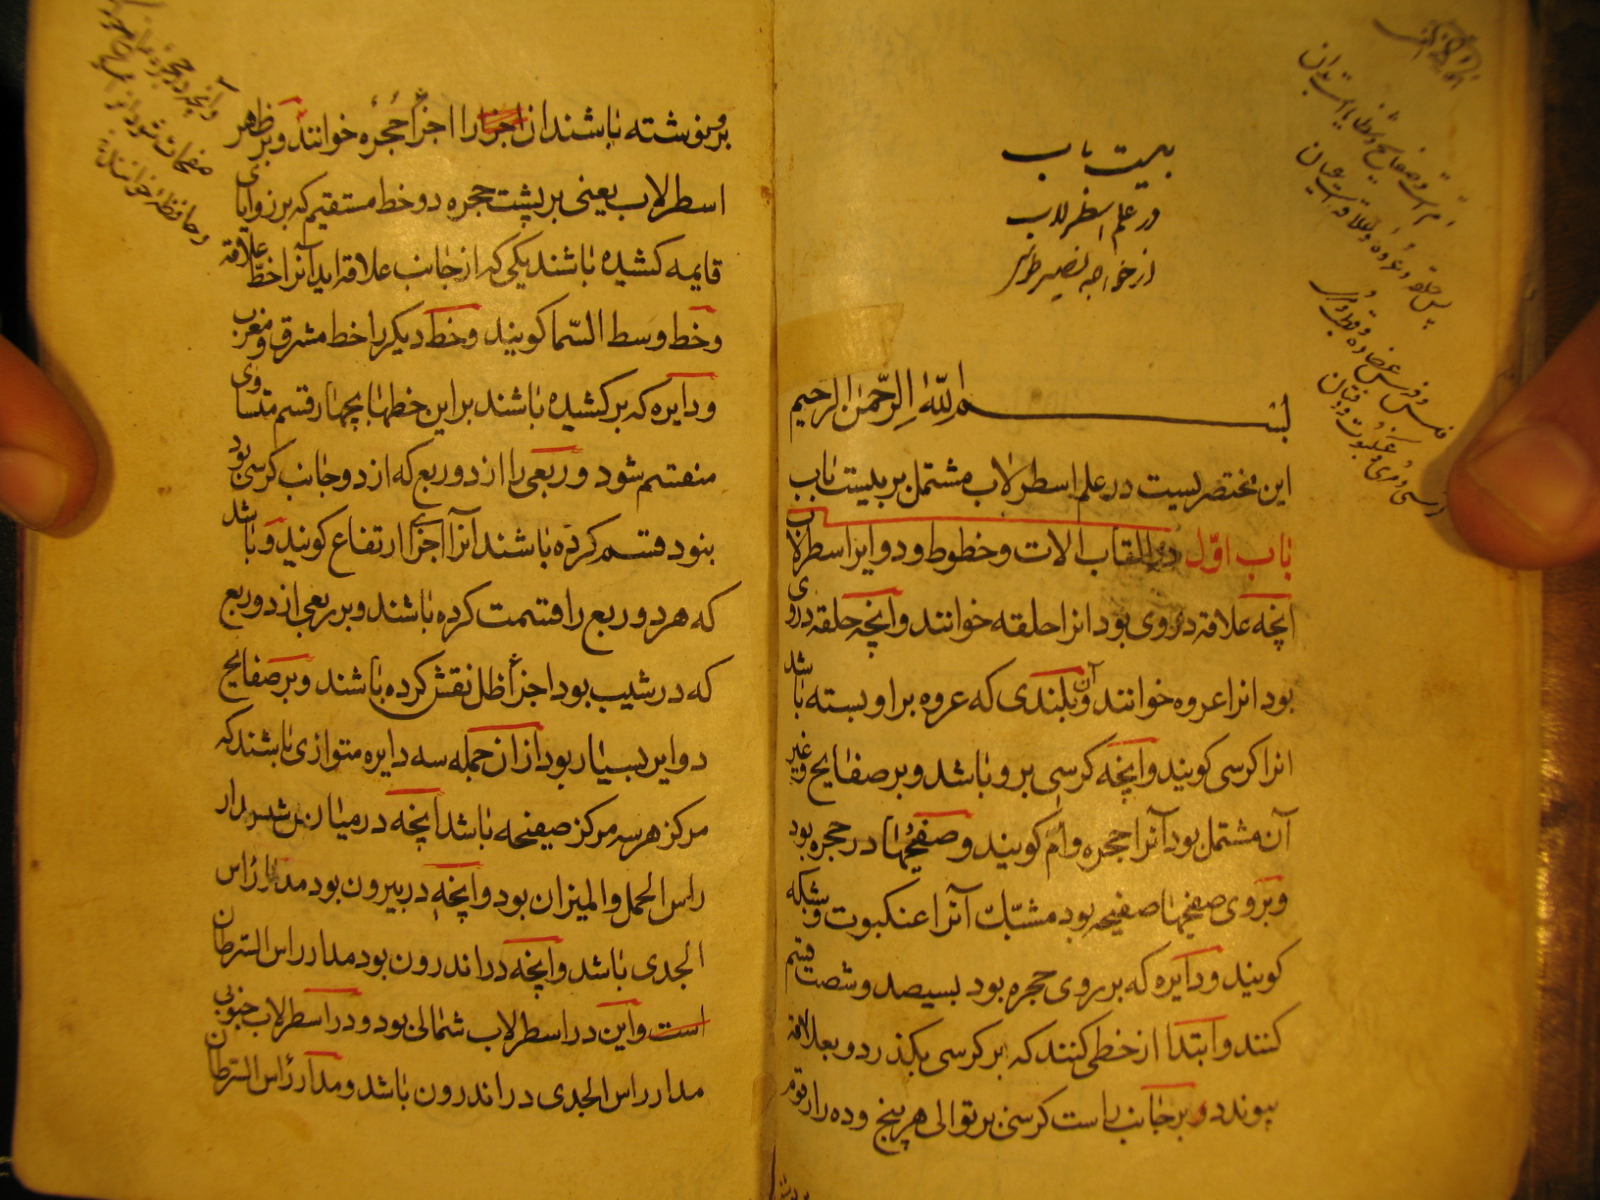 بیست باب
در علم اسطرلاب
از خواجه نصیر طوسی
بسم الله الرحمن الرحیم
این مختصریست در علم اسطرلاب مشتمل بر بیست باب
باب اوّل در القاب الات و خطوط و دوایر اسطرلاب
انچه علاقه در وی بود انرا حلقه خوانند و انچه حلقه در وی
بود انرا عروه خوانند و آن بلندی که عروه بر او بسته باشد
انرا کرسی کویند و انچه کرسی برو باشد و بر صفایح و غیر
آن مشتمل بود آنرا حجره و امّ کویند و صفیحها در حجره بود
و بر روی صفیحها صفیحه بود مشبّک آنرا عنکبوت و شبکه
کویند و دایره که بر روی حجره بود بسیصد و شصت قسم
کنند و ابتدا از خطی کنند که بر کرسی بکذرد و بعلاقه
پیوندد و بر جانب راست کرسی بر توالی هر پنج و ده را رقوم
برو نوشته باشند ان اجزا را اجزأ حجره خوانند و بر ظاهر
اسطرلاب یعنی بر پشت حجره دو خط مستقیم که بر زوایای
قایمه کشیده باشند یکی که از جانب علاقه اید آنرا خطّ علاقه
و خط وسط السّما کویند و خط دیکر را خط مشرق و مغرب
و دایره که بر کشیده باشند بر این خطها بچهار قسم متساوی
منقسم شود و ربعی را از دو ربع که از دو جانب کرسی بود
بنود قسم کرده باشند آنرا اجزای ارتفاع کویند و باشد
که هر دو ربع را قسمت کرده باشند و بر ربعی از دو ربع
که در شیب بود اجزأ ظل نقش کرده باشند و بر صفایح
دوایر بسیار بود از ان جمله سه دایره متوازی باشند که
مرکز هر سه مرکز صفیحه باشد انچه در میان بود مدار
راس الحمل و المیزان بود و انچه در بیرون بود مدار راس
الجدی باشد و انچه در اندرون بود مدار راس السّرطان
است و این در اسطرلاب شمالی بود و در اسطرلاب جنوبی
مدار راس الجدی در اندرون باشد و مدار رأس السّرطان